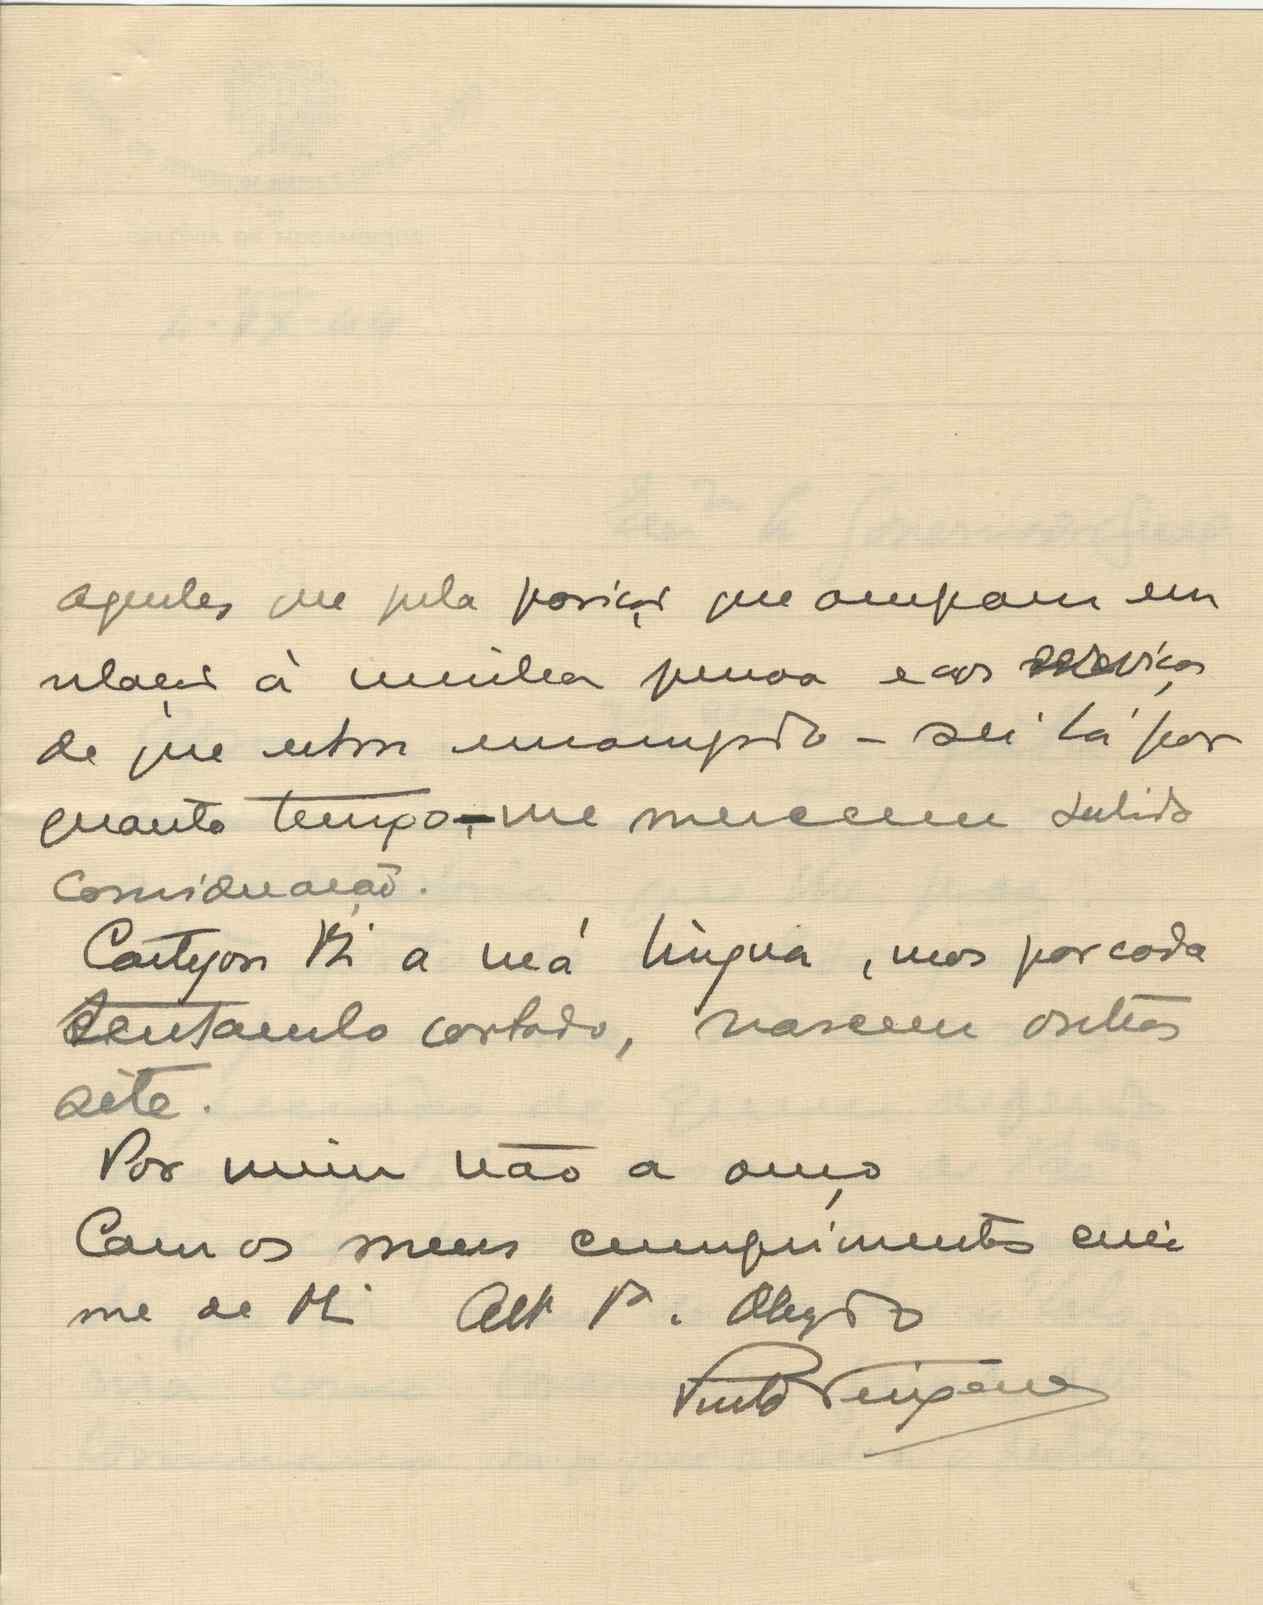 agentes que pela posição que ocupam em
relação à minha pessoa e aos serviços
de que estou encarregado - sei lá por
quanto tempo - me merecem subida
consideração.
Castigou a má língua, mas por cada
tentaculo cortado, nascem outros
sete.
Por mim não a ouço
Com os meus cumprimentos
me de Obgdo
Pinto Teixeira